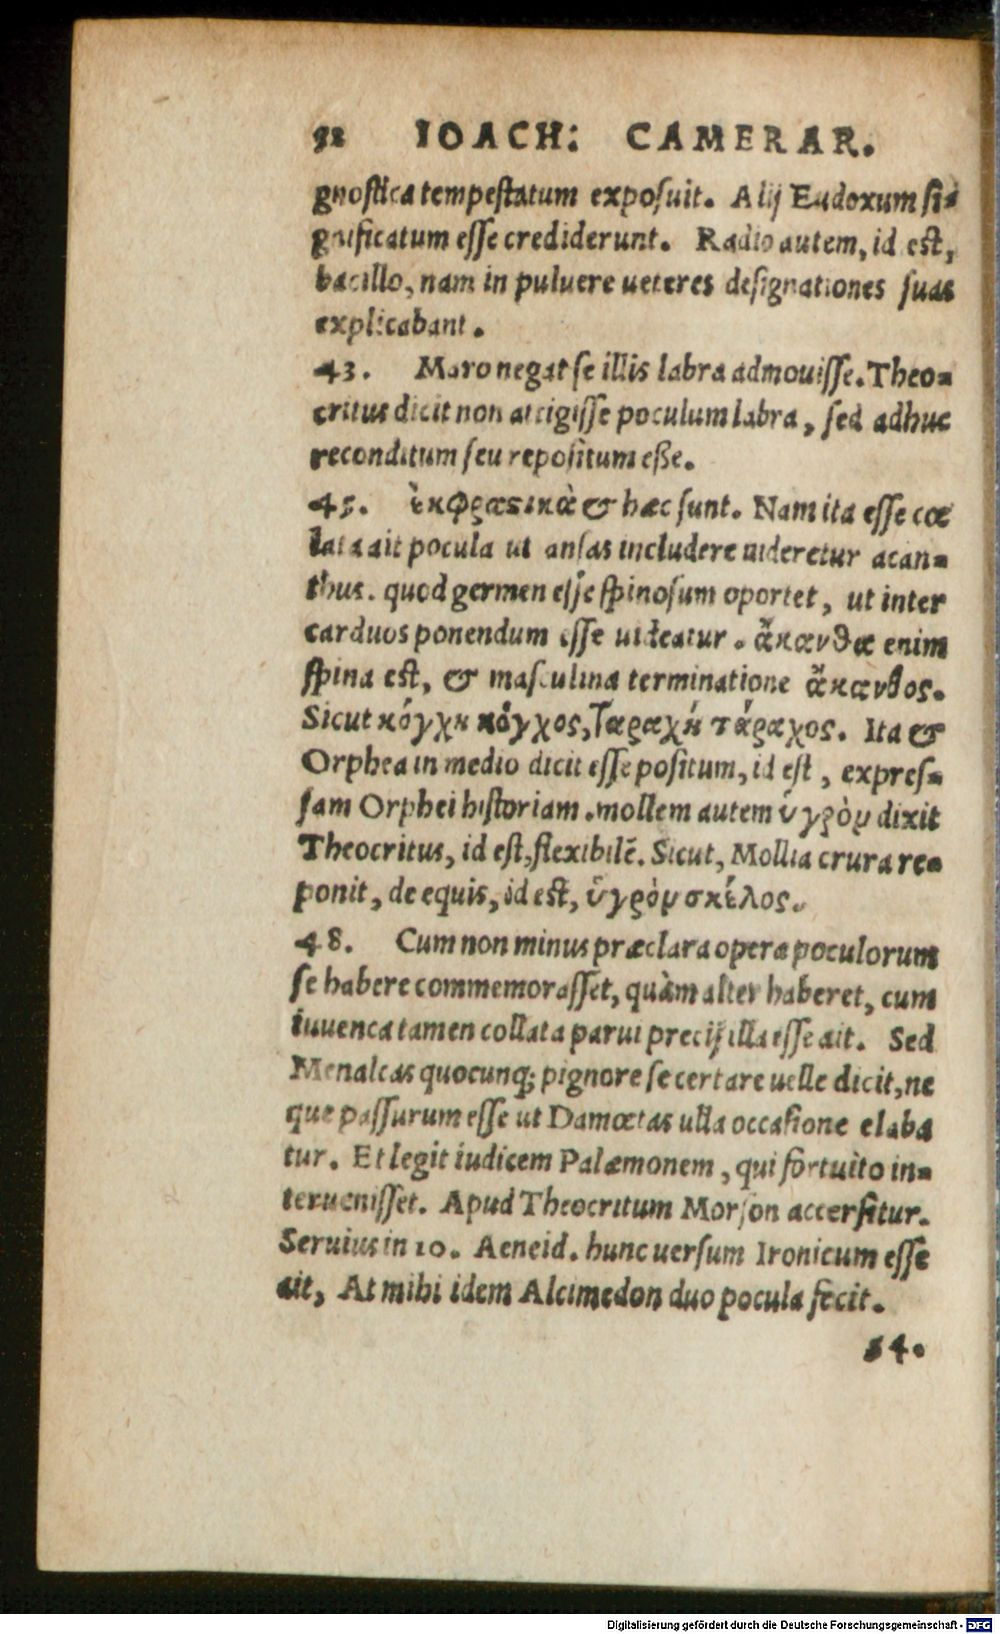 92 IOACH: CAMERAR.
gnostica tempestatum exposuit. Alij Eudoxum si-
gnificatum esse crediderunt. Radio autem, id est,
bacillo, nam in puluere ueteres designationes suas
explicabant.
43. Maro negat se illis labra admouisse. Theo-
critus dicit non attigisse poculum labra, sed adhuc
reconditum seu repositum esse.
45. ἐκφραστικὰ & hæc sunt. Nam ita esse cœ
lata ait pocula ut ansas includere uideretur acan-
thus. quod germen esse spinosum oportet, ut inter
carduos ponendum esse uideatur. ἄκανθα enim
spina est, & masculina terminatione ἄκανθος.
Sicut κόγχη κόγχος, ταραχή τάραχος. Ita &
Orphea in medio dicit esse positum, id est, expres-
sam Orphei historiam. mollem autem ὑγρὸν dixit
Theocritus, id est, flexibilē. Sicut, Mollia crura re-
ponit, de equis, id est, ὑγρὸν σκέλος.
48. Cum non minus præclara opera poculorum
se habere commemorasset, quàm alter haberet, cum
iuuenca tamen collata parui precij illa esse ait. Sed
Menalcas quocunq; pignore se certare uelle dicit, ne
que passurum esse ut Damœtas ulla occasione elaba
tur. Et legit iudicem Palæmonem, qui fortuito in-
teruenisset. Apud Theocritum Morson accersitur.
Seruius in 10. Aeneid. hunc uersum Ironicum esse
ait, At mihi idem Alcimedon duo pocula fecit.
54.
Digitalisierung gefördert durch die Deutsche Forschungsgemeinschaft - DFG